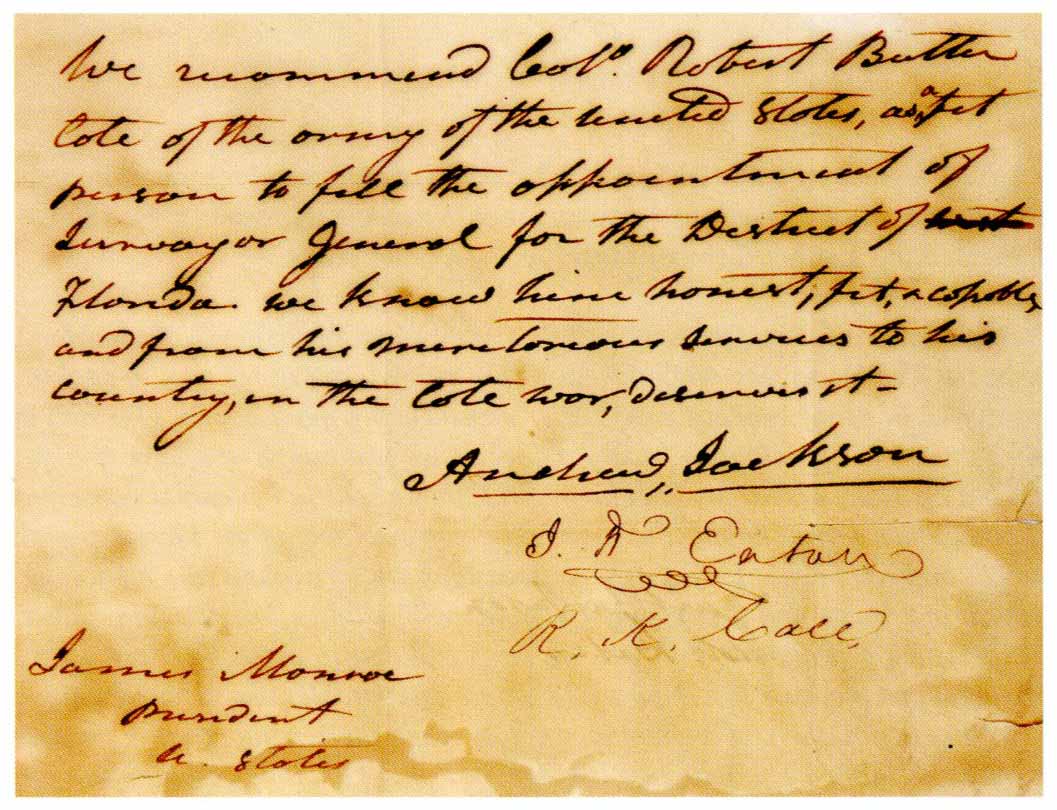 We recommend Colo. Robert Butler
late of the army of the united States, as a fit
person to fill the appointment of
Survayor General for the District of
Florida. we know him honest, fit, & capable,
and from his meritorious services to his
country, in the late war, deserves it -
Andrew Jackson
J. H Eaton
R. K. Call,
James Monroe
president
u. States